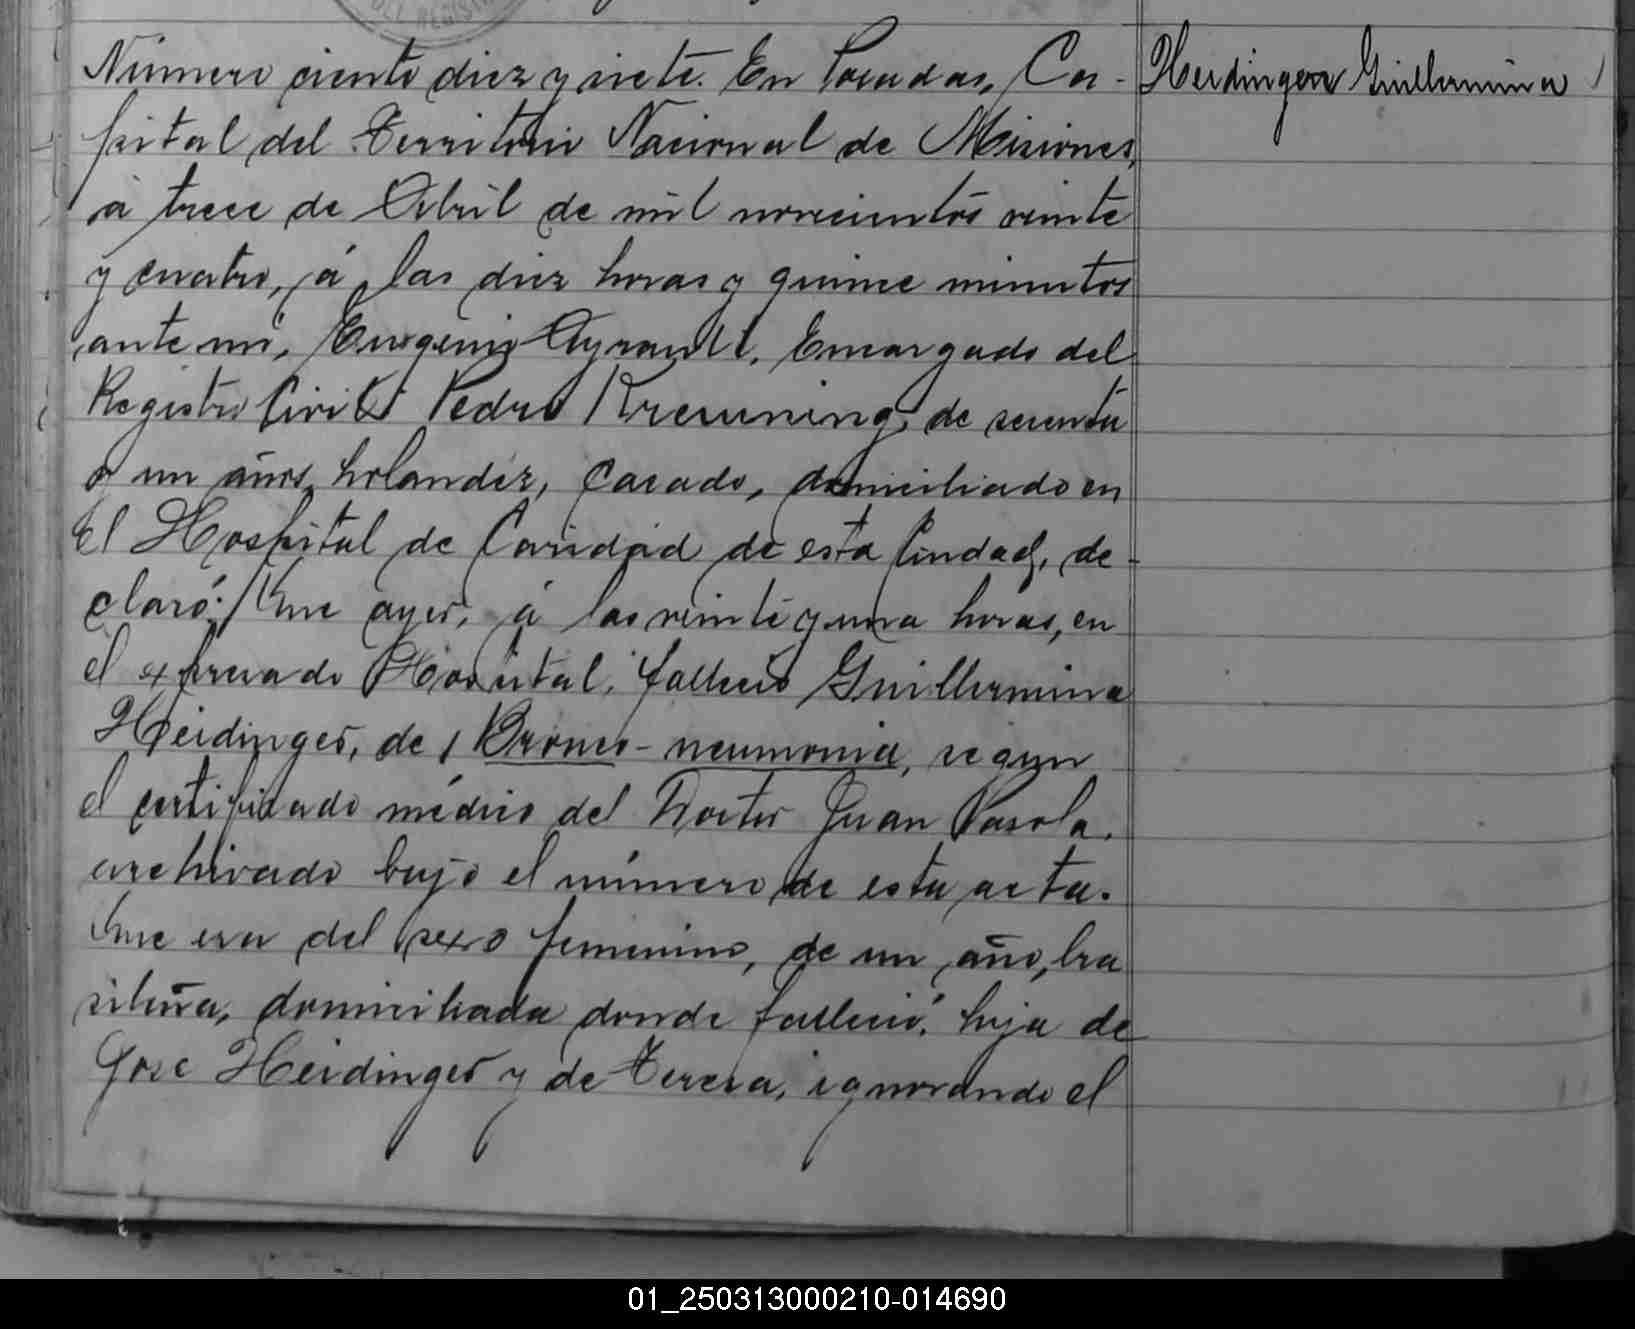 DEL REGISTR
Número ciento diez y siete. En Posadas, Ca-
pital del Territorio Nacional de Misiones,
á trece de Abril de mil novecientos veinte
y cuatro, á las diez horas y quince minutos
ante mi, Eugenio Ayrault, Encargado del
Registro Civil Pedro Kreuning, de sesenta
y un años, holandéz, casado, domiciliado en
el Hospital de Caridad de esta Ciudad, de-
claró: Que ayer, á las veinte y una horas, en
el expresado Hospital, falleció Guillermina
Heidinger, de Bronco-neumonia, segun
el certificado médico del Doctor Juan Pasola,
archivado bajo el número de esta acta.
Que era del sexo femenino, de un año, bra
sileña, domiciliada donde falleció, hija de
José Heidinger y de Teresa, ignorando el
Heidinger Guillermina
01_250313000210-014690